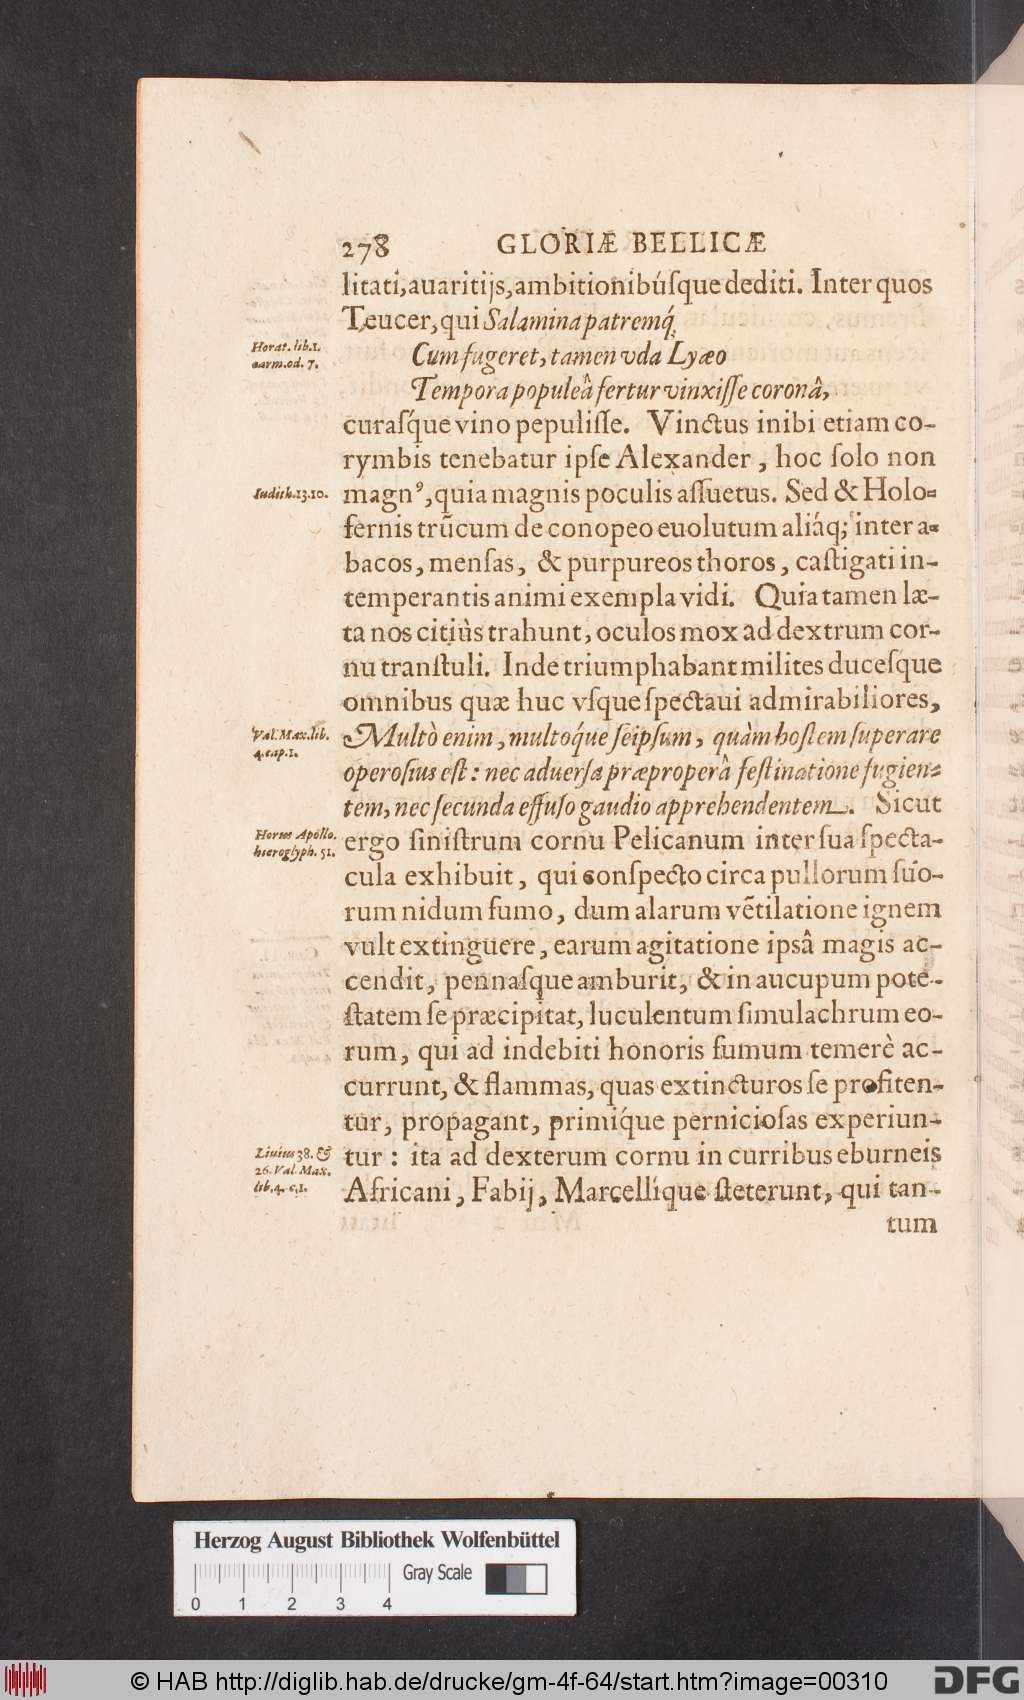 278 GLORIÆ BELLICÆ
litati, auaritijs, ambitionibúſque dediti. Inter quos
Teucer, qui Salamina patremq́;
Horat. lib. 1.
carm. od. 7.
Cum fugeret, tamen vda Lyæo
Tempora populeâ fertur vinxiſſe coronâ,
curaſq́ue vino pepuliſſe. Vinctus inibi etiam co-
rymbis tenebatur ipſe Alexander, hoc ſolo non
Iudith. 13. 10.
magnꝰ, quia magnis poculis aſſuetus. Sed & Holo-
fernis trũcum de conopeo euolutum aliáq; inter a-
bacos, menſas, & purpureos thoros, caſtigati in-
temperantis animi exempla vidi. Quia tamen læ-
ta nos citiùs trahunt, oculos mox ad dextrum cor-
nu tranſtuli. Inde triumphabant milites duceſque
omnibus quæ huc vſque ſpectaui admirabiliores,
Val. Max. lib.
4. cap. 1.
Multò enim, multoq́ue ſeipſum, quàm hoſtem ſuperare
operoſius eſt: nec aduerſa præproperâ feſtinatione fugien-
tem, nec ſecunda effuſo gaudio apprehendentem. Sicut
Horus Apollo.
hieroglyph. 51.
ergo ſiniſtrum cornu Pelicanum inter ſua ſpecta-
cula exhibuit, qui conſpecto circa pullorum ſuo-
rum nidum fumo, dum alarum vẽtilatione ignem
vult extinguere, earum agitatione ipsâ magis ac-
cendit, pennaſque amburit, & in aucupum pote-
ſtatem ſe præcipitat, luculentum ſimulachrum eo-
rum, qui ad indebiti honoris fumum temerè ac-
currunt, & flammas, quas extincturos ſe profiten-
tur, propagant, primiq́ue pernicioſas experiun-
Liuius 38. &
26. Val. Max.
lib. 4. c. 1.
tur: ita ad dexterum cornu in curribus eburneis
Africani, Fabij, Marcelliq́ue ſteterunt, qui tan-
tum
Herzog August Bibliothek Wolfenbüttel
Gray Scale
0 1 2 3 4
© HAB http://diglib.hab.de/drucke/gm-4f-64/start.htm?image=00310
DFG